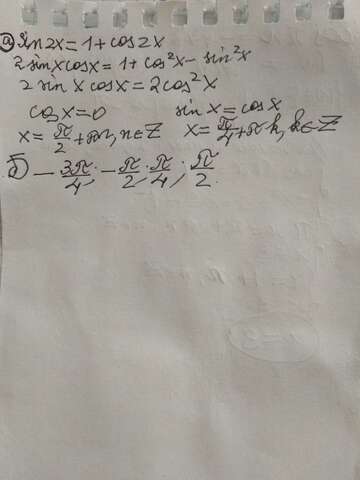 а) Sin2x = 1 + cos2x
2 sinx cosx = 1 + cos²x - sin²x
2 sin x cosx = 2cos²x
cosx = 0 sin x = cosx
x = π/2 + πn, n ∈ Z x = π/4 + πk, k ∈ Z
б) -3π/4; -π/2; π/4; π/2.